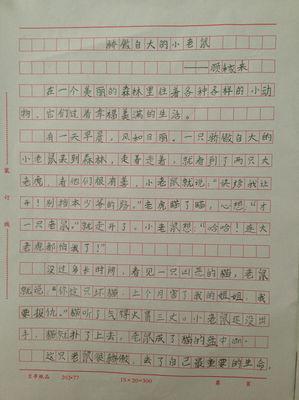 骄傲自大的小老鼠
在一个美丽的森林里住着各种各样的小动
物，它们过着幸福美满的生活。
有一天早晨，风和日丽。一只骄傲自大的
小老鼠来到森林，走着走着，就看到了两只大
老虎，看他们很有善，小老鼠就说：“快给我让
开！别挡本少爷的路。”老虎瞄了瞄，心想：“才
一只老鼠。”就走开了。小老鼠想：“哈哈！连大
老虎都怕我了！”
没过多长时间，看见一只凶恶的猫，老鼠
就说：“你这只坏猫，上个月害了我的姐姐，我
要报仇。”猫听了气得火冒三丈。小老鼠还没出
手，猫就扑了上去，老鼠成了猫的盘中
这只老鼠很骄傲，丢了自己最重要的生命。
装
订
线
15×20=300